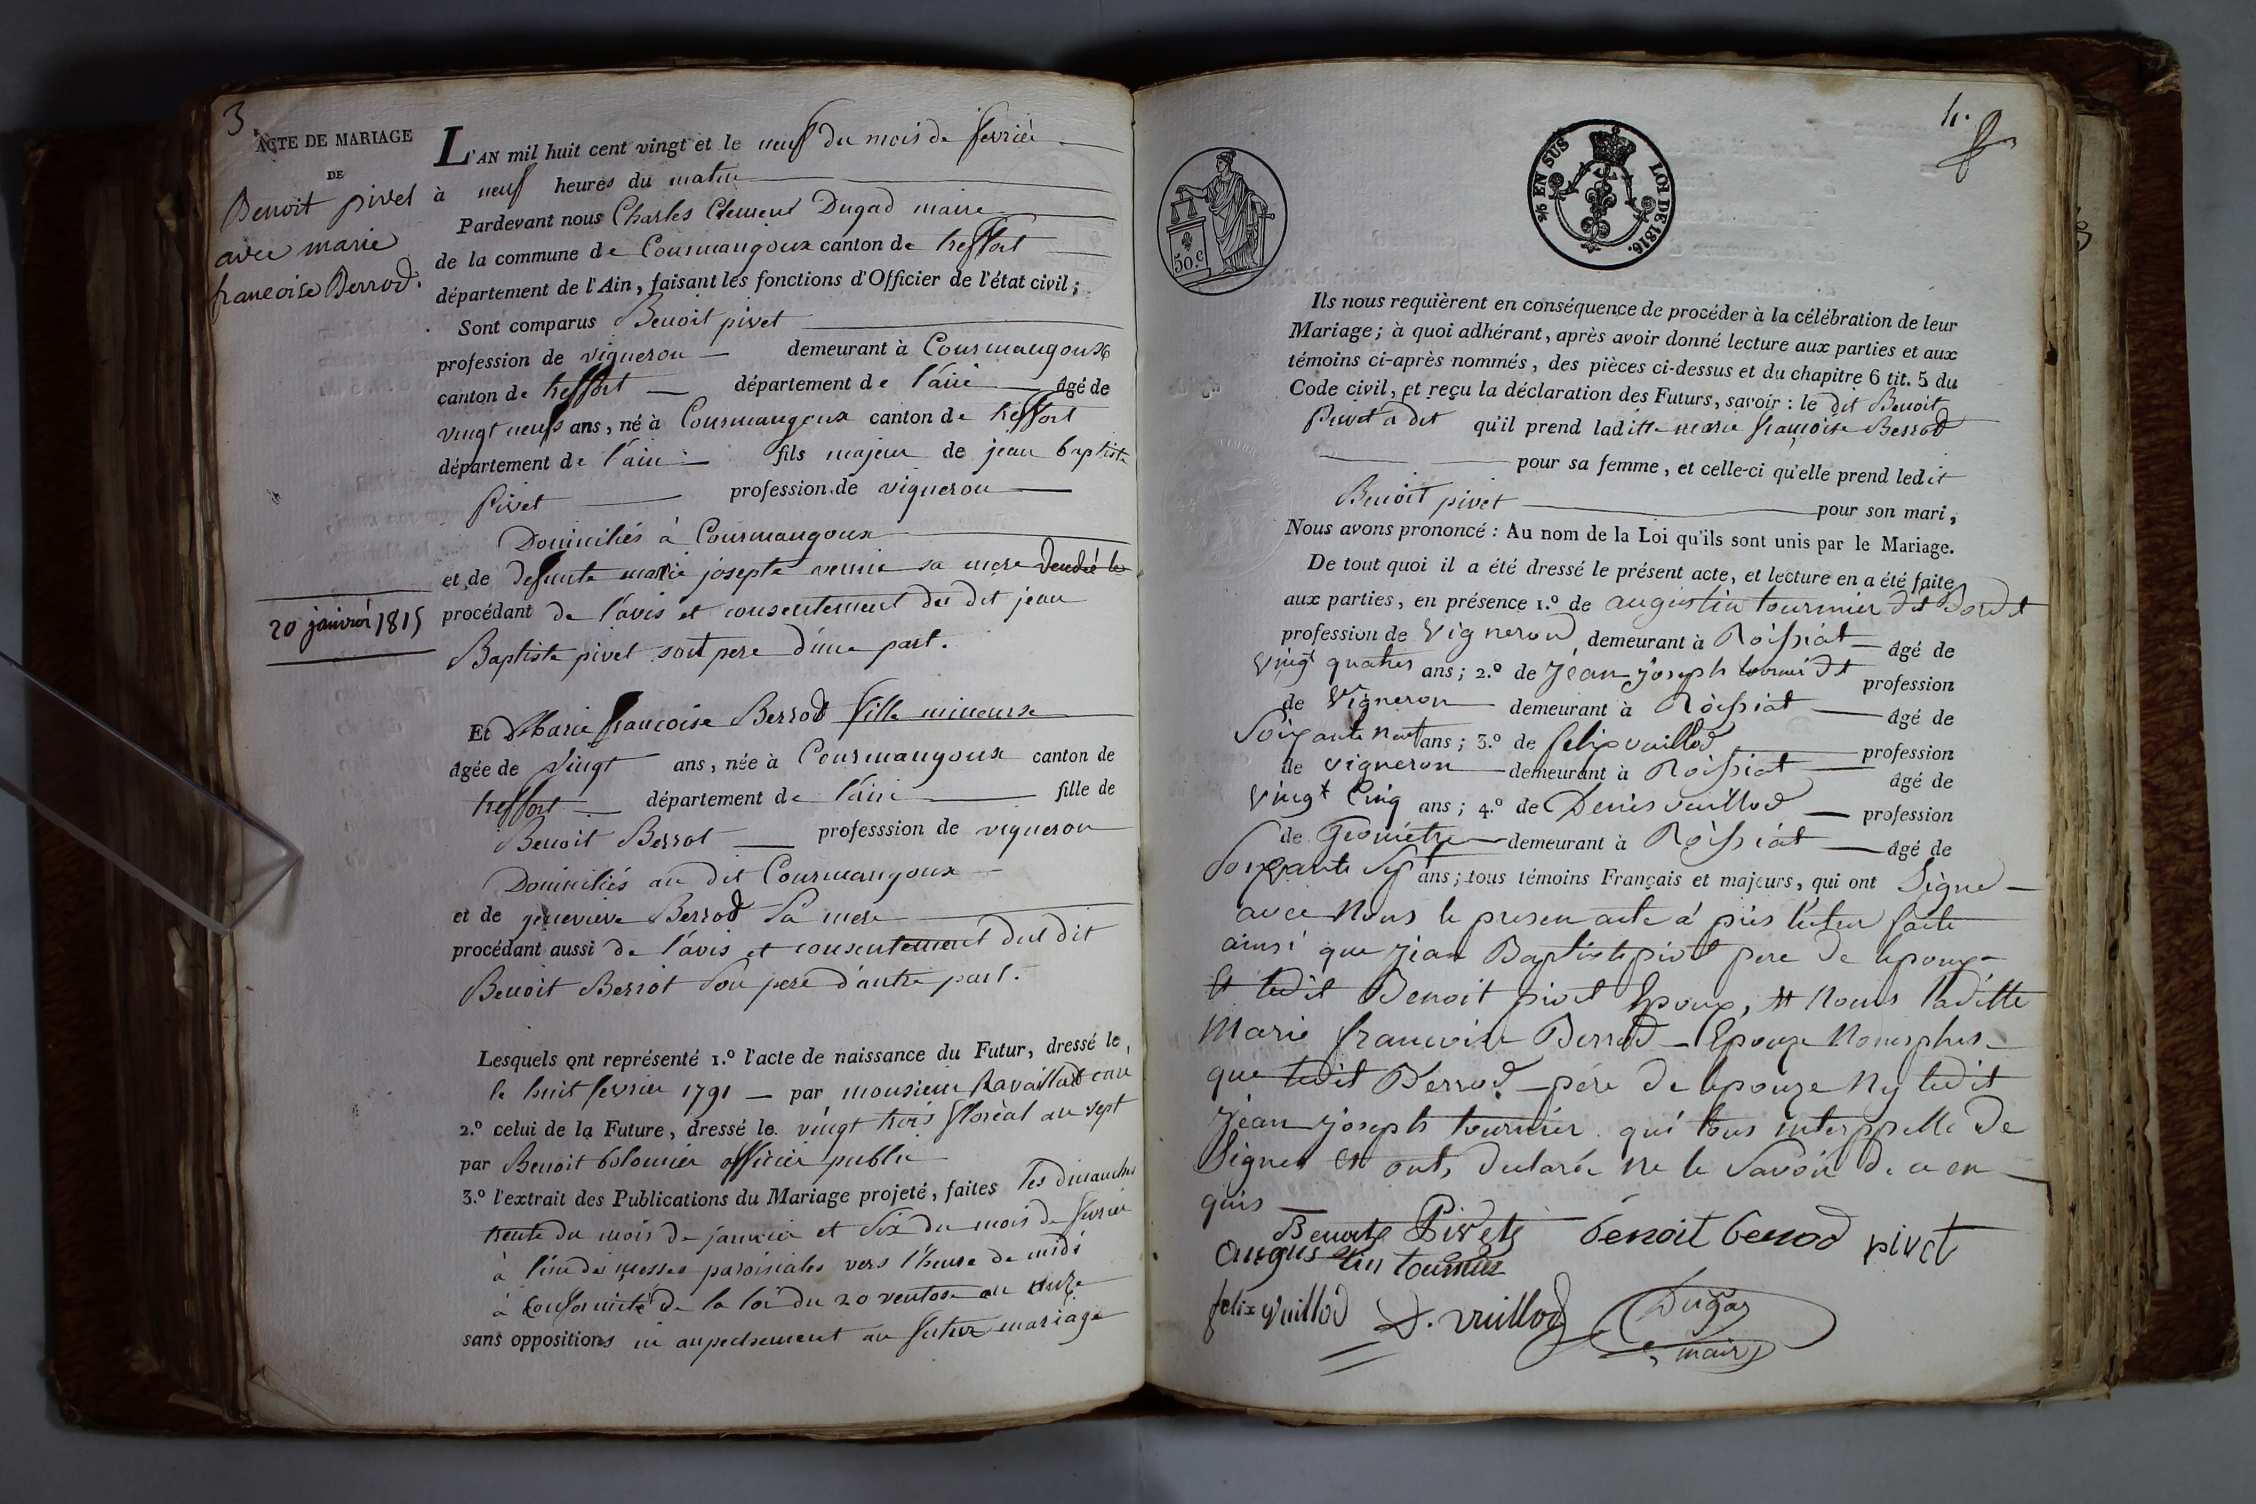 3
ACTE DE MARIAGE
DE
Benoit pivet
avec marie
francoise Berrod.
20 janvier 1815
L'AN mil huit cent vingt et le neuf du mois de fevrier
à neuf heures du matin
Pardevant nous Charles Clement Dugad maire
de la commune de Courmangoux canton de treffort
département de l'Ain, faisant les fonctions d'Officier de l'état civil;
Sont comparus Benoit pivet
profession de vigneron demeurant à Courmangoux
canton de treffort département de l'ain âgé de
vingt neuf ans, né à Courmangoux canton de treffort
département de l'ain fils majeur de jean baptiste
Pivet profession de vigneron
Domiciliés à Courmangoux
et de defunte marie josepte sa mere
procédant de l'avis et consentement du dit jean
Baptiste pivet son pere d'une part.
Et Marie francoise Berrod fille mineure
âgée de vingt ans, née à Courmangoux canton de
treffort département de l'ain fille de
Benoit Berrot professsion de vigneron
Domiciliés au dit Courmangoux
et de genevieve Berrod sa mere
procédant aussi de l'avis et consentement dud dit
Benoit Berrot son pere d'autre part.
Lesquels ont représenté 1.º l'acte de naissance du Futur, dressé le
le huit fevrier 1791 par monsieur Ravaillad curé
2.º celui de la Future, dressé le vingt trois floréal an sept
par Benoit officier public
3.º l'extrait des Publications du Mariage projeté, faites les dimanches
trente du mois de janvier et six du mois de fevrier
à l'issue des messes paroisiales vers l'heure de midi
à conformité de la loi du 20 ventose an onze
sans oppositions ni anpechement au futur mariage
4.
2/5 EN SUS LOI DE 1816.
50.c
Ils nous requièrent en conséquence de procéder à la célébration de leur
Mariage; à quoi adhérant, après avoir donné lecture aux parties et aux
témoins ci-après nommés, des pièces ci-dessus et du chapitre 6 tit. 5 du
Code civil, et reçu la déclaration des Futurs, savoir: le dit Benoit
Pivet a dit qu'il prend laditte marie françoise Berrod
pour sa femme, et celle-ci qu'elle prend ledit
Benoit pivet pour son mari,
Nous avons prononcé: Au nom de la Loi qu'ils sont unis par le Mariage.
De tout quoi il a été dressé le présent acte, et lecture en a été faite
aux parties, en présence 1.º de augustin tournier dit
profession de Vigneron demeurant à Roissiat âgé de
vingt quatres ans; 2.º de jean joseph tournier profession
de Vigneron demeurant à Roissiat âgé de
Soixante neuf ans; 3.º de felix vuillod profession
de vigneron demeurant à Roissiat âgé de
vingt Cinq ans; 4.º de Denis vuillod profession
de Geomètre demeurant à Roissiat âgé de
Soixante sept ans; tous témoins Français et majeurs, qui ont Signé
avec Nous le presen acte a près lectur faite
ainsi que jean Baptiste pivet pere de lepoux
et ledit Benoit pivet Epoux, et Nonts laditte
Marie francoise Berrod Epouze Nomsplus
que ledit Berrod pére de lepouze Ny ledit
jean joseph tournier qui tous interppelle de
Signer et ont declaré ne le Savoir de ce en
quis
Benoit Pivet benoit berrod pivet
augustin tournier
felix vuillod D. vuillod Dugad
maire